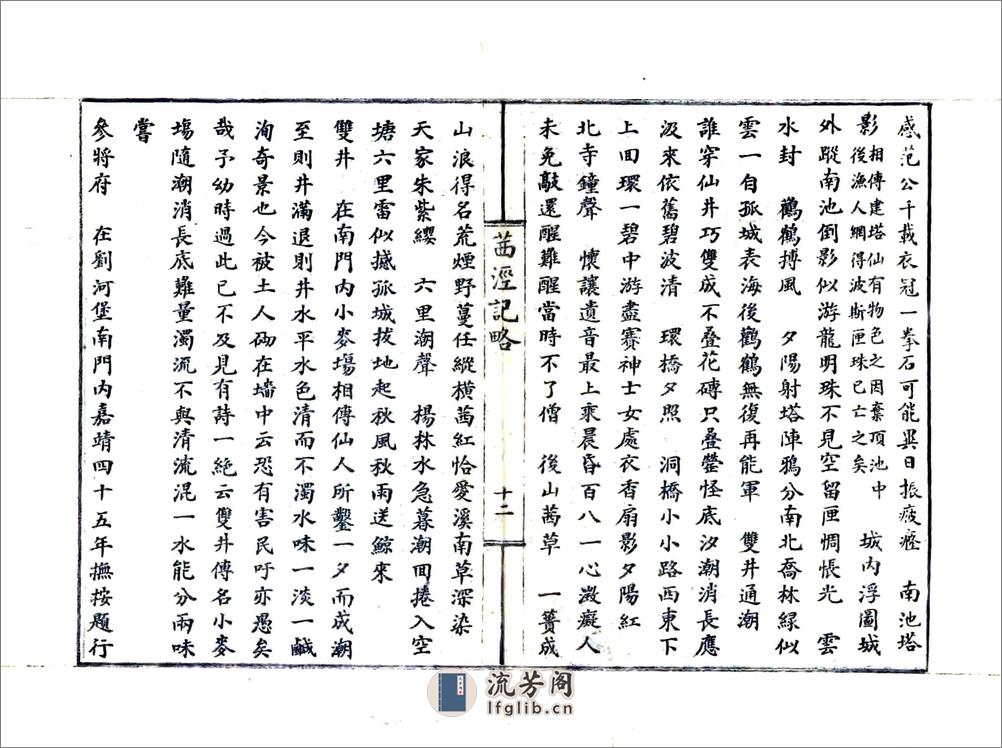 感范公千載衣冠一拳石可能異日振疲癃　南池塔
影相傳建塔仙有物色之因棄頂池中後漁人網得波斯匣珠已亡之矣　城內浮圖城
外蹤南池倒影似游龍明珠不見空留匣惆悵光　雲
水封　鸛鶴搏風　夕陽射塔陣鴉分南北喬林綠似
雲一自孤城表海後鸛鶴無復再能軍　雙井通潮
誰穿仙井巧雙成不疊花磚只疊甃怪底汐潮消長應
汲來依舊碧波清　環橋夕照　洞橋小小路西東下
上回環一碧中游盡賽神士女處衣香扇影夕陽紅
北寺鐘聲　懷讓遺音最上乘晨昏百八一心澂癡人
未免敲還醒難醒當時不了僧　後山茜草　一簣成
茜涇記略
十二
山浪得名荒煙野蔓任縱橫茜紅恰愛溪南草深染
天家朱紫纓　六里潮聲　楊林水急暮潮回捲入空
塘六里雷似撼孤城拔地起秋風秋雨送鯨來
雙井　在南門內小麥塲相傳仙人所鑿一夕而成潮
至則井滿退則井水平水色清而不濁水味一淡一鹹
洵奇景也今被土人砌在墻中云恐有害民吁亦愚矣
哉予幼時過此已不及見有詩一絕云雙井傳名小麥
塲隨潮消長底難量濁流不與清流混一水能分兩味
嘗
參將府　在劉河堡南門內嘉靖四十五年撫按題行
流芳阁
lfglib.cn